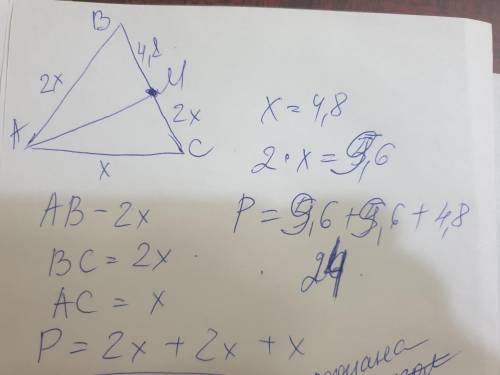 B
4,8
2x
M
2x
A
C
x
x = 4,8
2 · x = 9,6
AB - 2x
P = 9,6 + 9,6 + 4,8
BC = 2x
24
AC = x
P = 2x + 2x + x